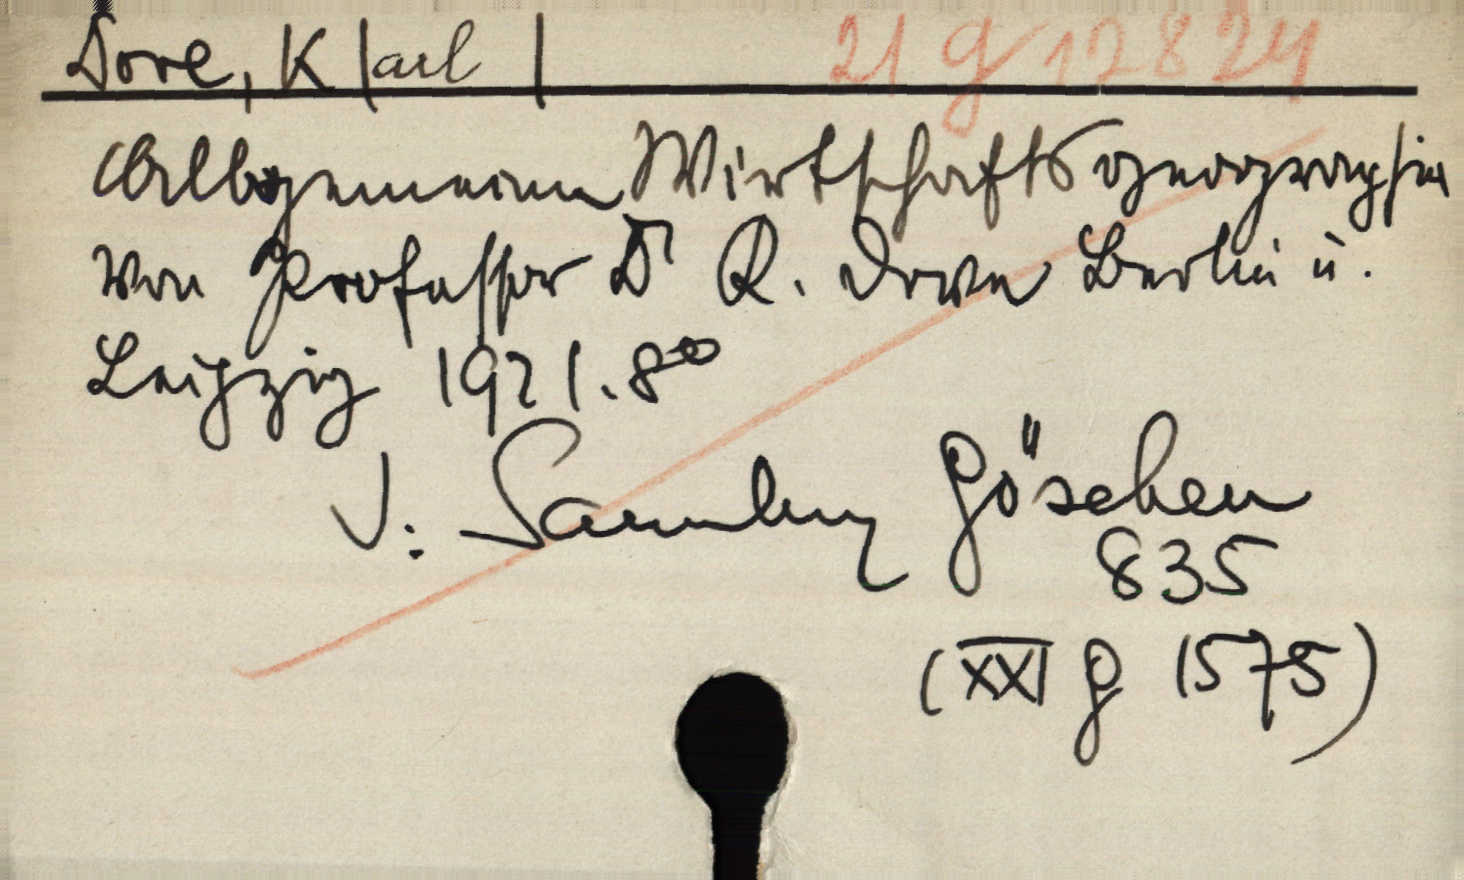 Dove, K|arl| 21 g 12824
Allgemeine Wirtschaftsgeographie
von Professor Dr K. Dove Berlin u.
Leipzig 1921. 8°
V: Sammlung Göschen
835
(XXI g 1575)